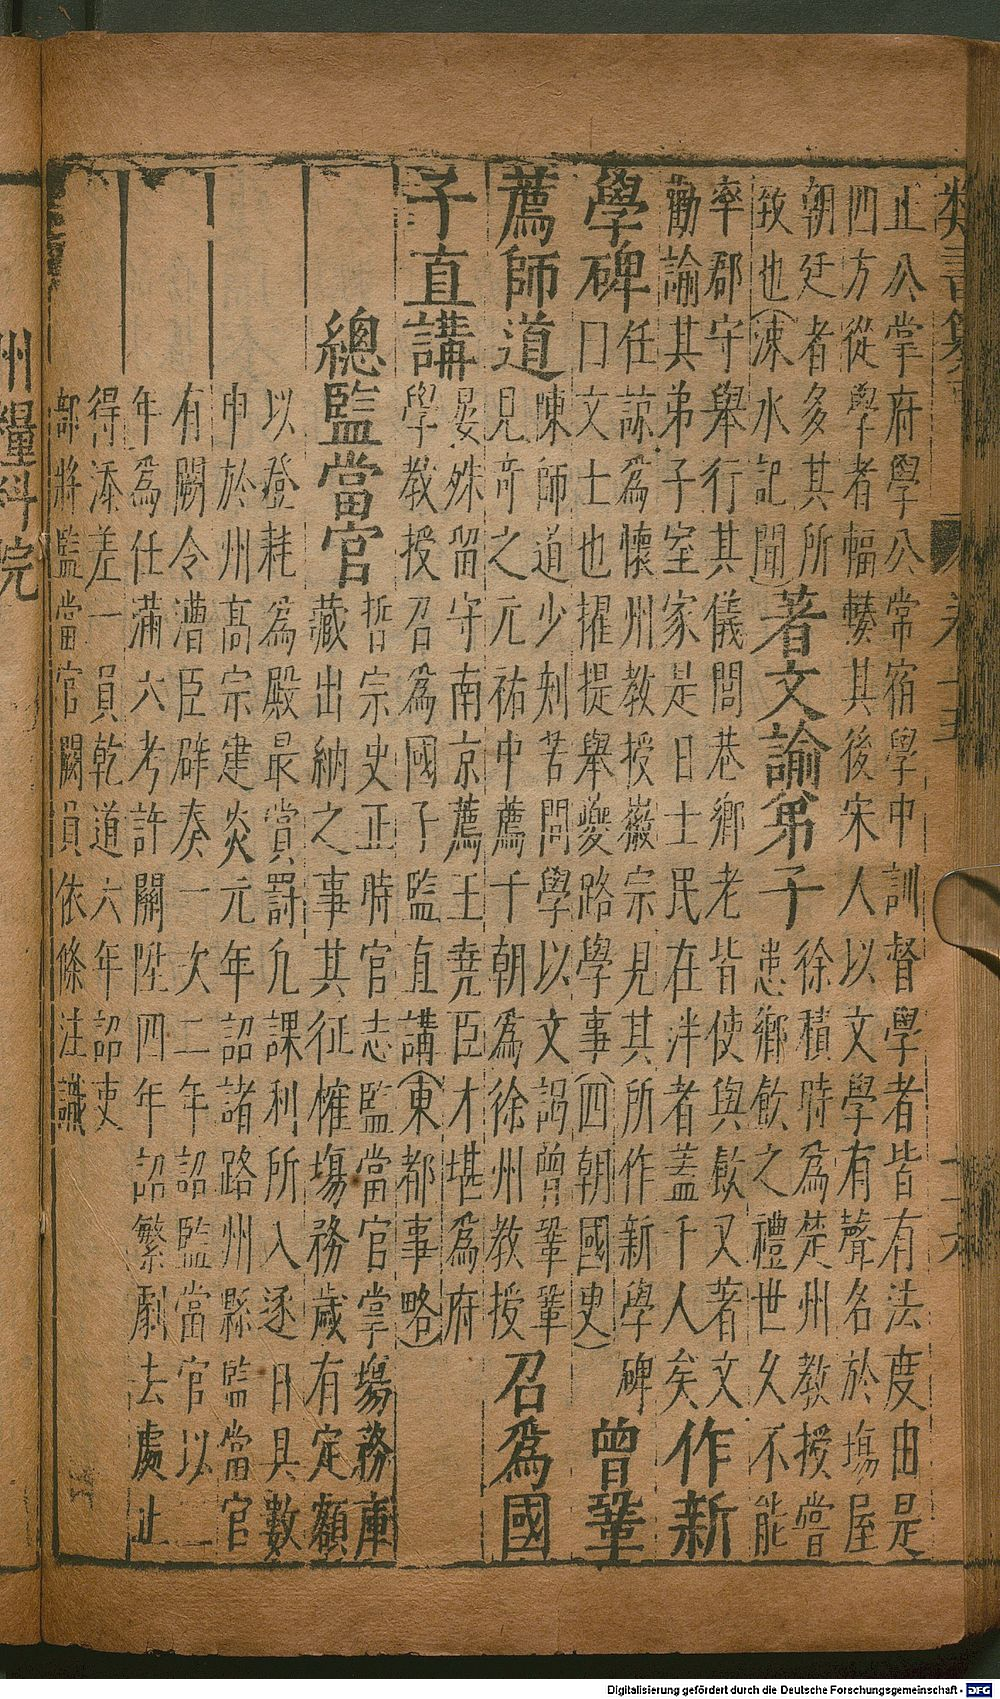 止公掌府學公常宿學中訓督學者皆有法度由是
四方從學者輻輳其後宋人以文學有聲名於塲屋
朝廷者多其所
致也(涑水記聞)
著文諭弟子
徐積時爲楚州教授嘗
患鄉飮之禮世久不能
率郡守舉行其儀閭巷鄉老皆使與飮又著文
勸諭其弟子室家是日士民在泮者蓋千人矣
作新
學碑
任諒爲懷州教授徽宗見其所作新學碑
曰文士也擢提舉夔路學事(四朝國史)
曾鞏
薦師道
陳師道少刻苦問學以文謁曾鞏鞏
見竒之元祐中薦于朝爲徐州教授
召爲國
子直講
晏殊留守南京薦王堯臣才堪爲府
學教授召爲國子監直講(東都事略)
總監當官
哲宗史正時官志監當官掌塲務庫
藏出納之事其征榷塲務歲有定額
以登耗爲殿最賞罰凡課利所入逐日具數
申於州高宗建炎元年詔諸路州縣監當官
有闕令漕臣辟奏一次二年詔監當官以二
年爲任滿六考許關陞四年詔繁劇去處止
得添差一員乾道六年詔吏
部將監當官闕員依條注議
州糧料院
Digitalisierung gefördert durch die Deutsche Forschungsgemeinschaft - DFG